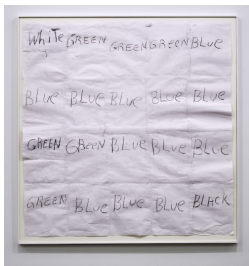 WHiTE GREEN GREEN GREEN BLUE
BLUE BLUE BLUE BLUE BLUE
GREEN GREEN BLUE BLUE BLUE
GREEN BLUE BLUE BLUE BLACK